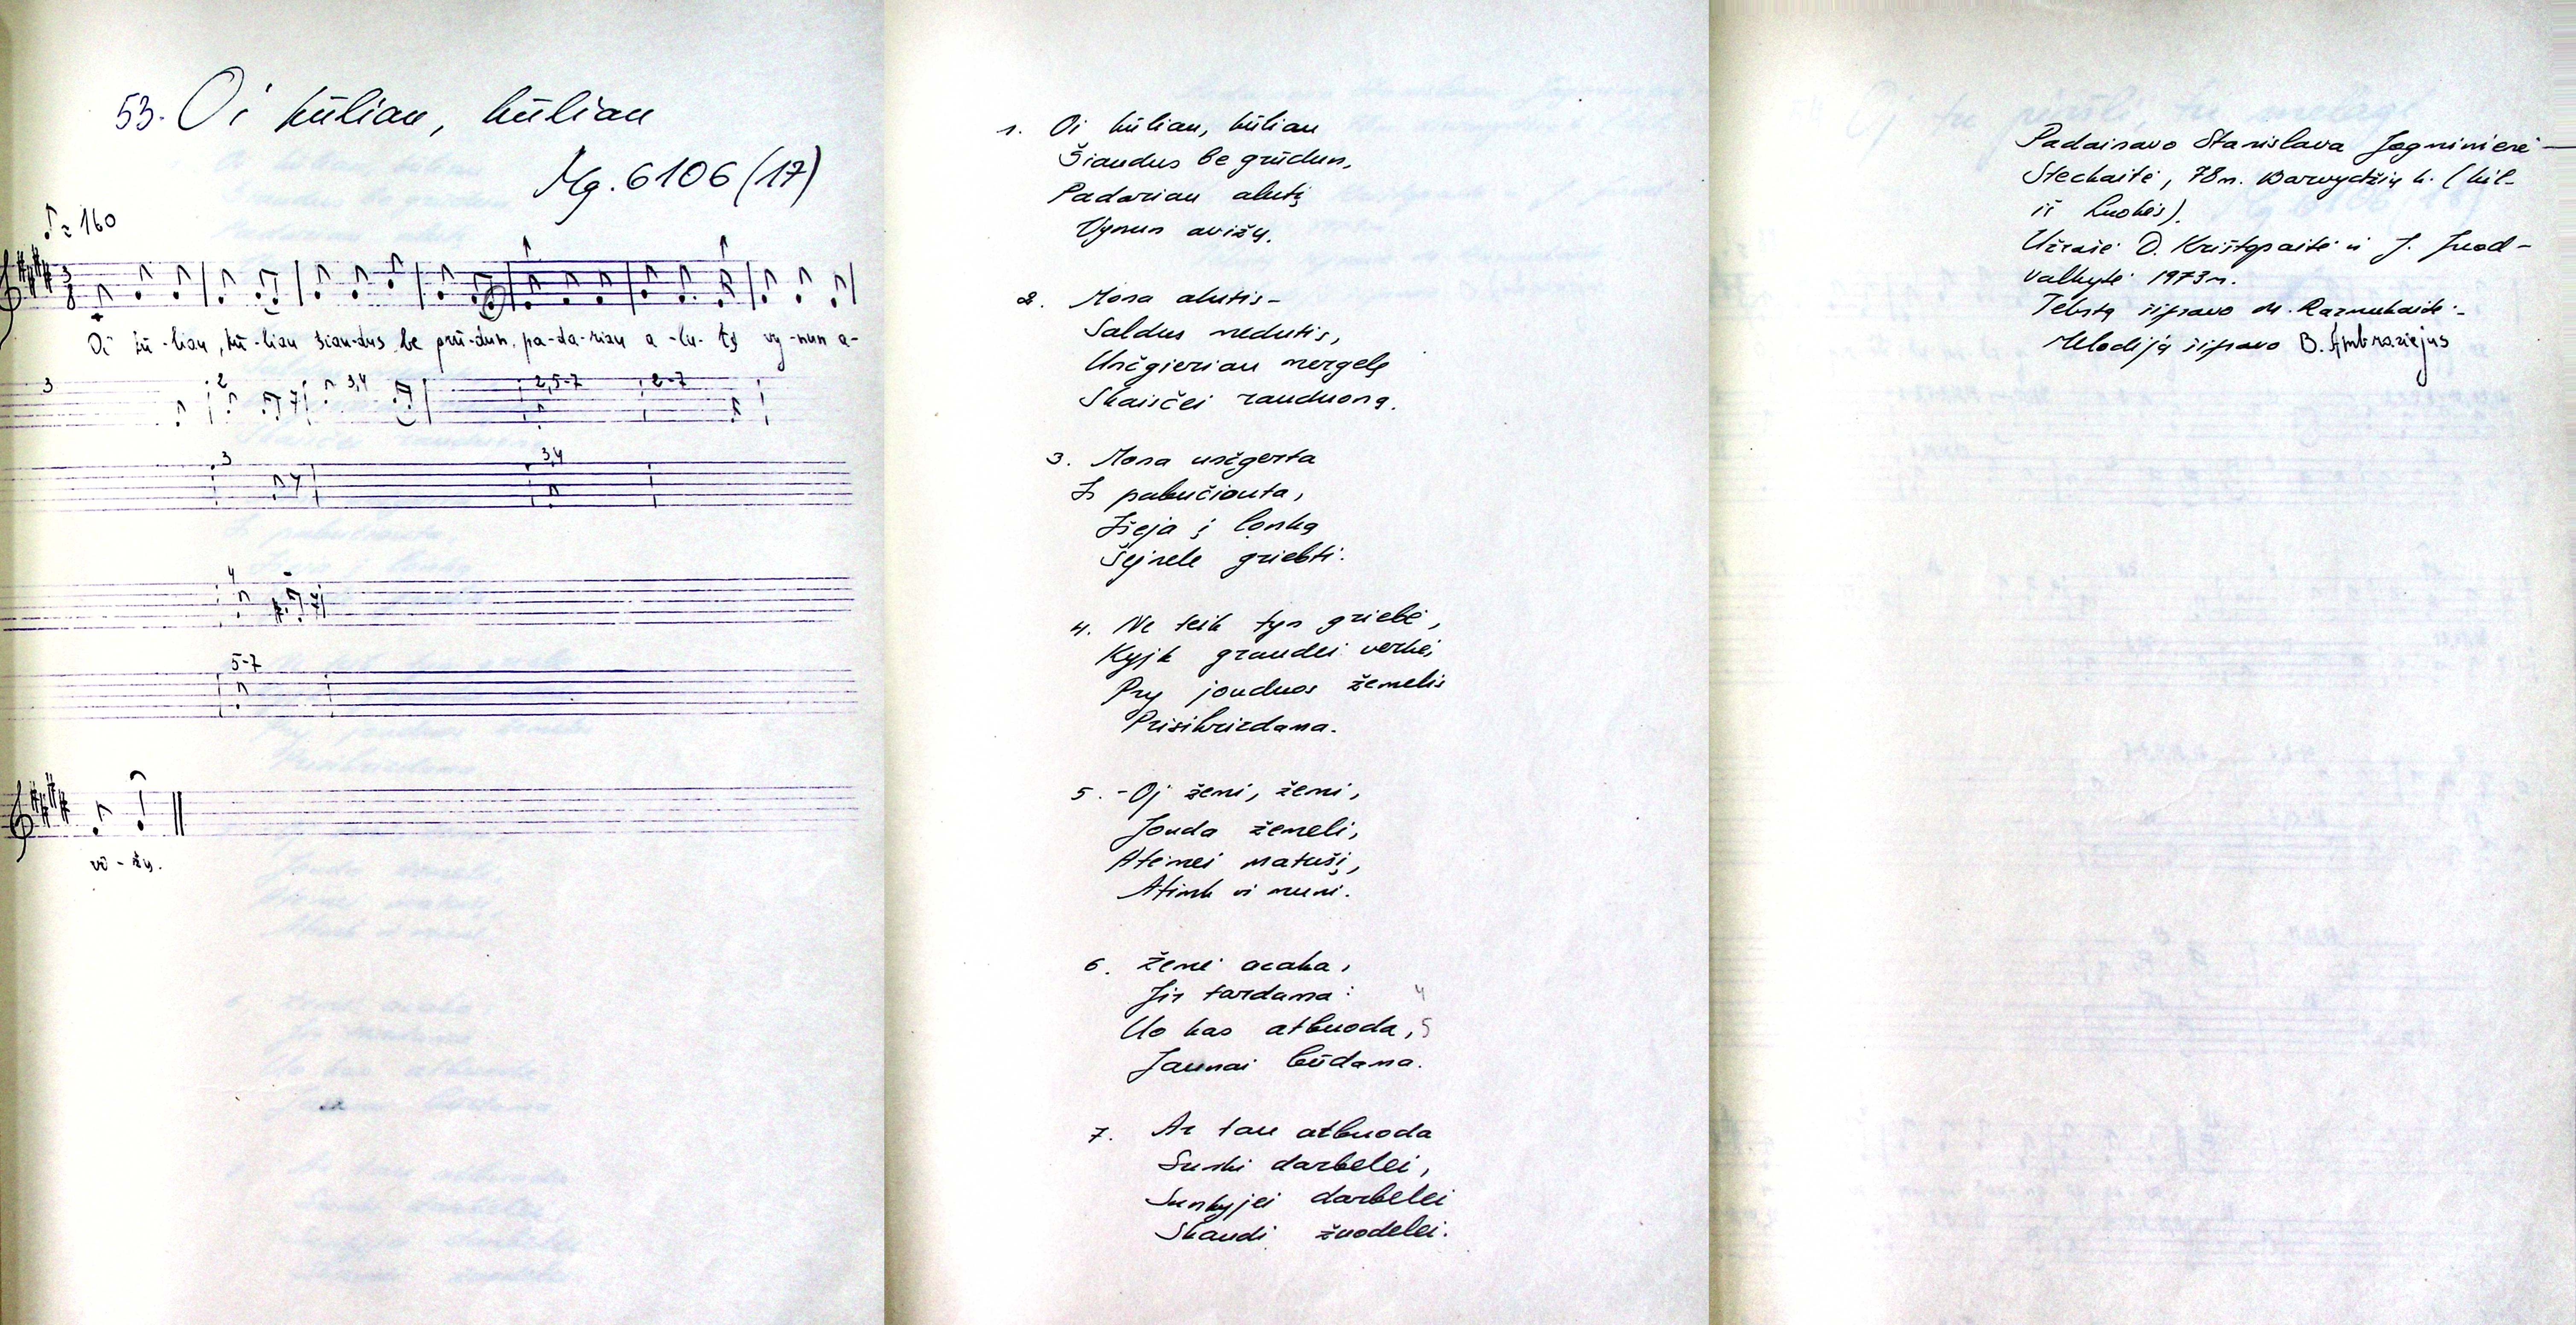 53. Oi kūliau, kūliau
Mg. 6106 (17)
♪ = 160
Oi kū-liau, kū-liau šiau-dus be grū-dun, pa-da-riau a-lu-tį vy-nun a-
3 2 3,4 2,5-7 2-7
3 3,4
4
5-7
vi-žų.
1. Oi kūliau, kūliau
Šiaudus be grūdun,
Padariau alutį
Vynun avižų.
2. Mona alutis-
Saldus medutis,
Unčgieriau mergelę
Skaisčei rauduoną.
3. Mona unčgerta
Ir pabučiouta,
Išeja į lonką
Šejnele griebti.
4. Ne teik tyn griebė,
Kyjk graudei verkė,
Pry jouduos žemelis
Prisikrizdama.
5. -Oj žemi, žemi,
Jouda žemeli,
Atėmei matušį,
Atimk ir muni.
6. Žemė acaka, 
Jir tardama: 4
Uo kas atbuoda, 5
Jaunai būdama.
7. Ar tau atbuoda
Sunki darbelei,
Sunkyjei darbelei
Skaudi žuodelei.
Padainavo Stanislava Jogminienė-
Stechaitė, 78 m. Barvydžių k. (kil.
iš Luokės).
Užrašė D. Krištopaitė ir J. Juod-
valkytė 1973 m.
Tekstą išifravo M. Razmukaitė
Melodiją šifravo B. Ambraziejus